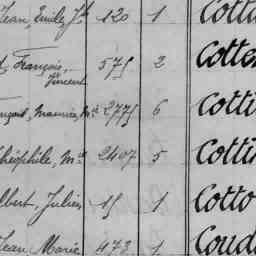 Jean, Emile, Jh 120 1 Cotta
François, Vincent 575 2 Cotte
Maurice, Ml 2775 6 Cotti
Théophile, Ml 2407 5 Cotti
Albert, Julien 15 1 Cotto
Jean Marie 473 1 Coud